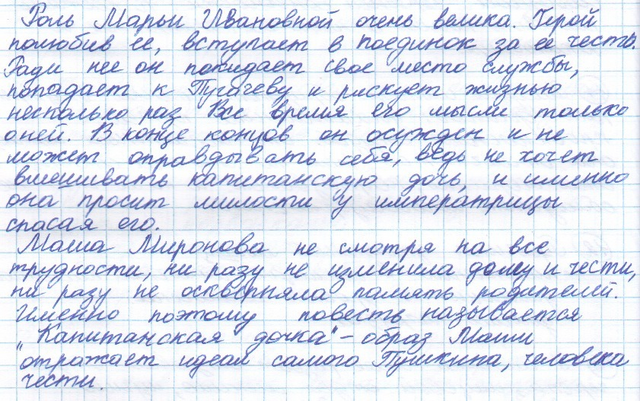 Роль Марьи Ивановной очень велика. Герой
полюбив ее, вступает в поединок за ее честь.
Ради нее он покидает свое место службы,
попадает к Пугачеву и рискует жизнью
несколько раз. Все время его мысли только
о ней. В конце концов он осужден и не
может оправдывать себя, ведь не хочет
вмешивать капитанскую дочь, и именно
она просит милости у императрицы
спасая его.
Маша Миронова не смотря на все
трудности, ни разу не изменила долгу и чести,
ни разу не осквирняла память родителей.
Именно поэтому повесть называется
„Капитанская дочка" – образ Маши
отражает идеал самого Пушкина, человека
чести.